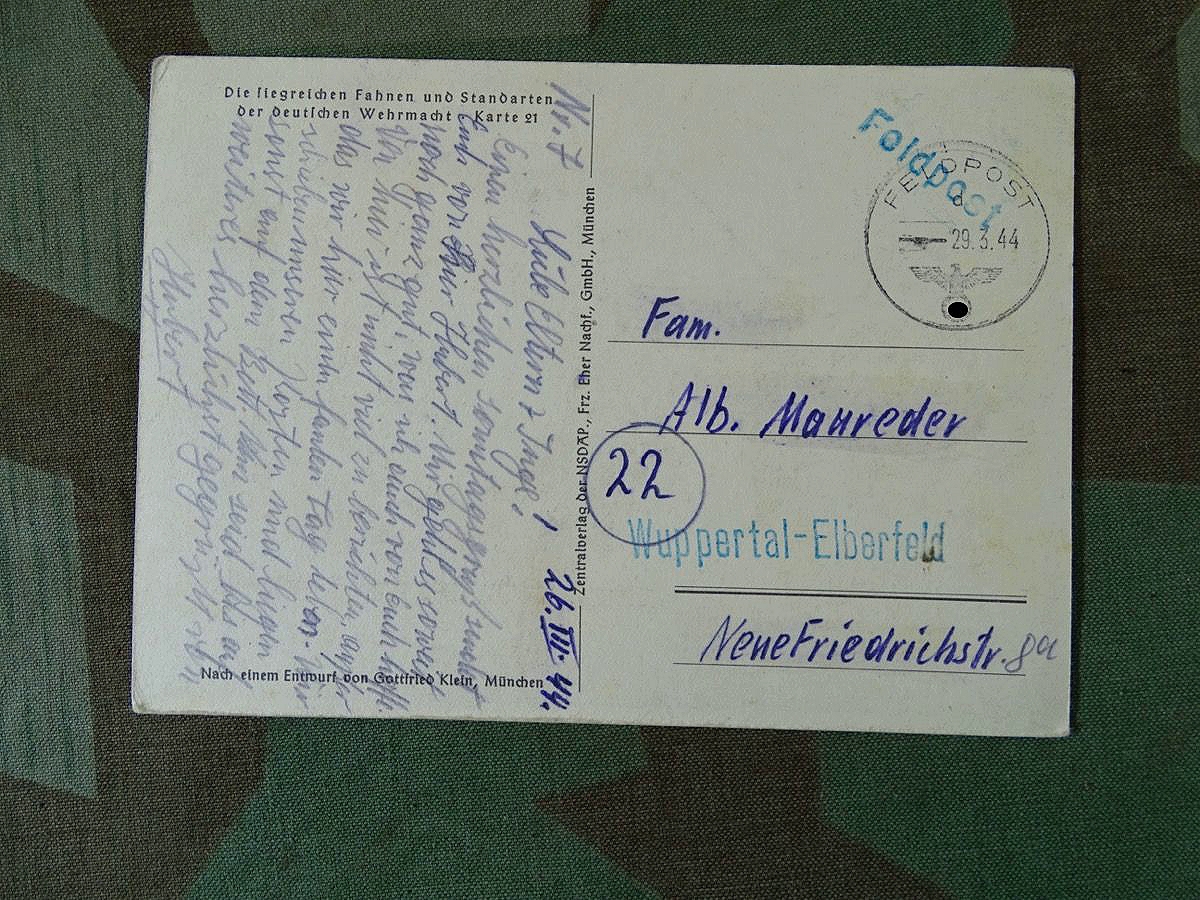 Die siegreichen Fahnen und Standarten
der deutschen Wehrmacht · Karte 21
Nr. 7
26. III. 44.
Liebe Eltern & Inge!
Einen herzlichen Sonntagsgruß sendet
Euch von hier Hubert. Mir geht es soweit
noch ganz gut, was ich auch von Euch hoffe.
Von mir ist nicht viel zu berichten, außer
das wir hier einen Tag
schieben unseren Posten und
sonst auf dem Nun seid bis auf
weiteres herzlichst gegrüßt v.
Hubert
Nach einem Entwurf von Gottfried Klein, München
Zentralverlag der NSDAP., Frz. Eher Nachf., GmbH., München
Feldpost
FELDPOST
d
29.3.44
Fam.
Alb. Manreder
22
Wuppertal-Elberfeld
Neue Friedrichstr. 8a